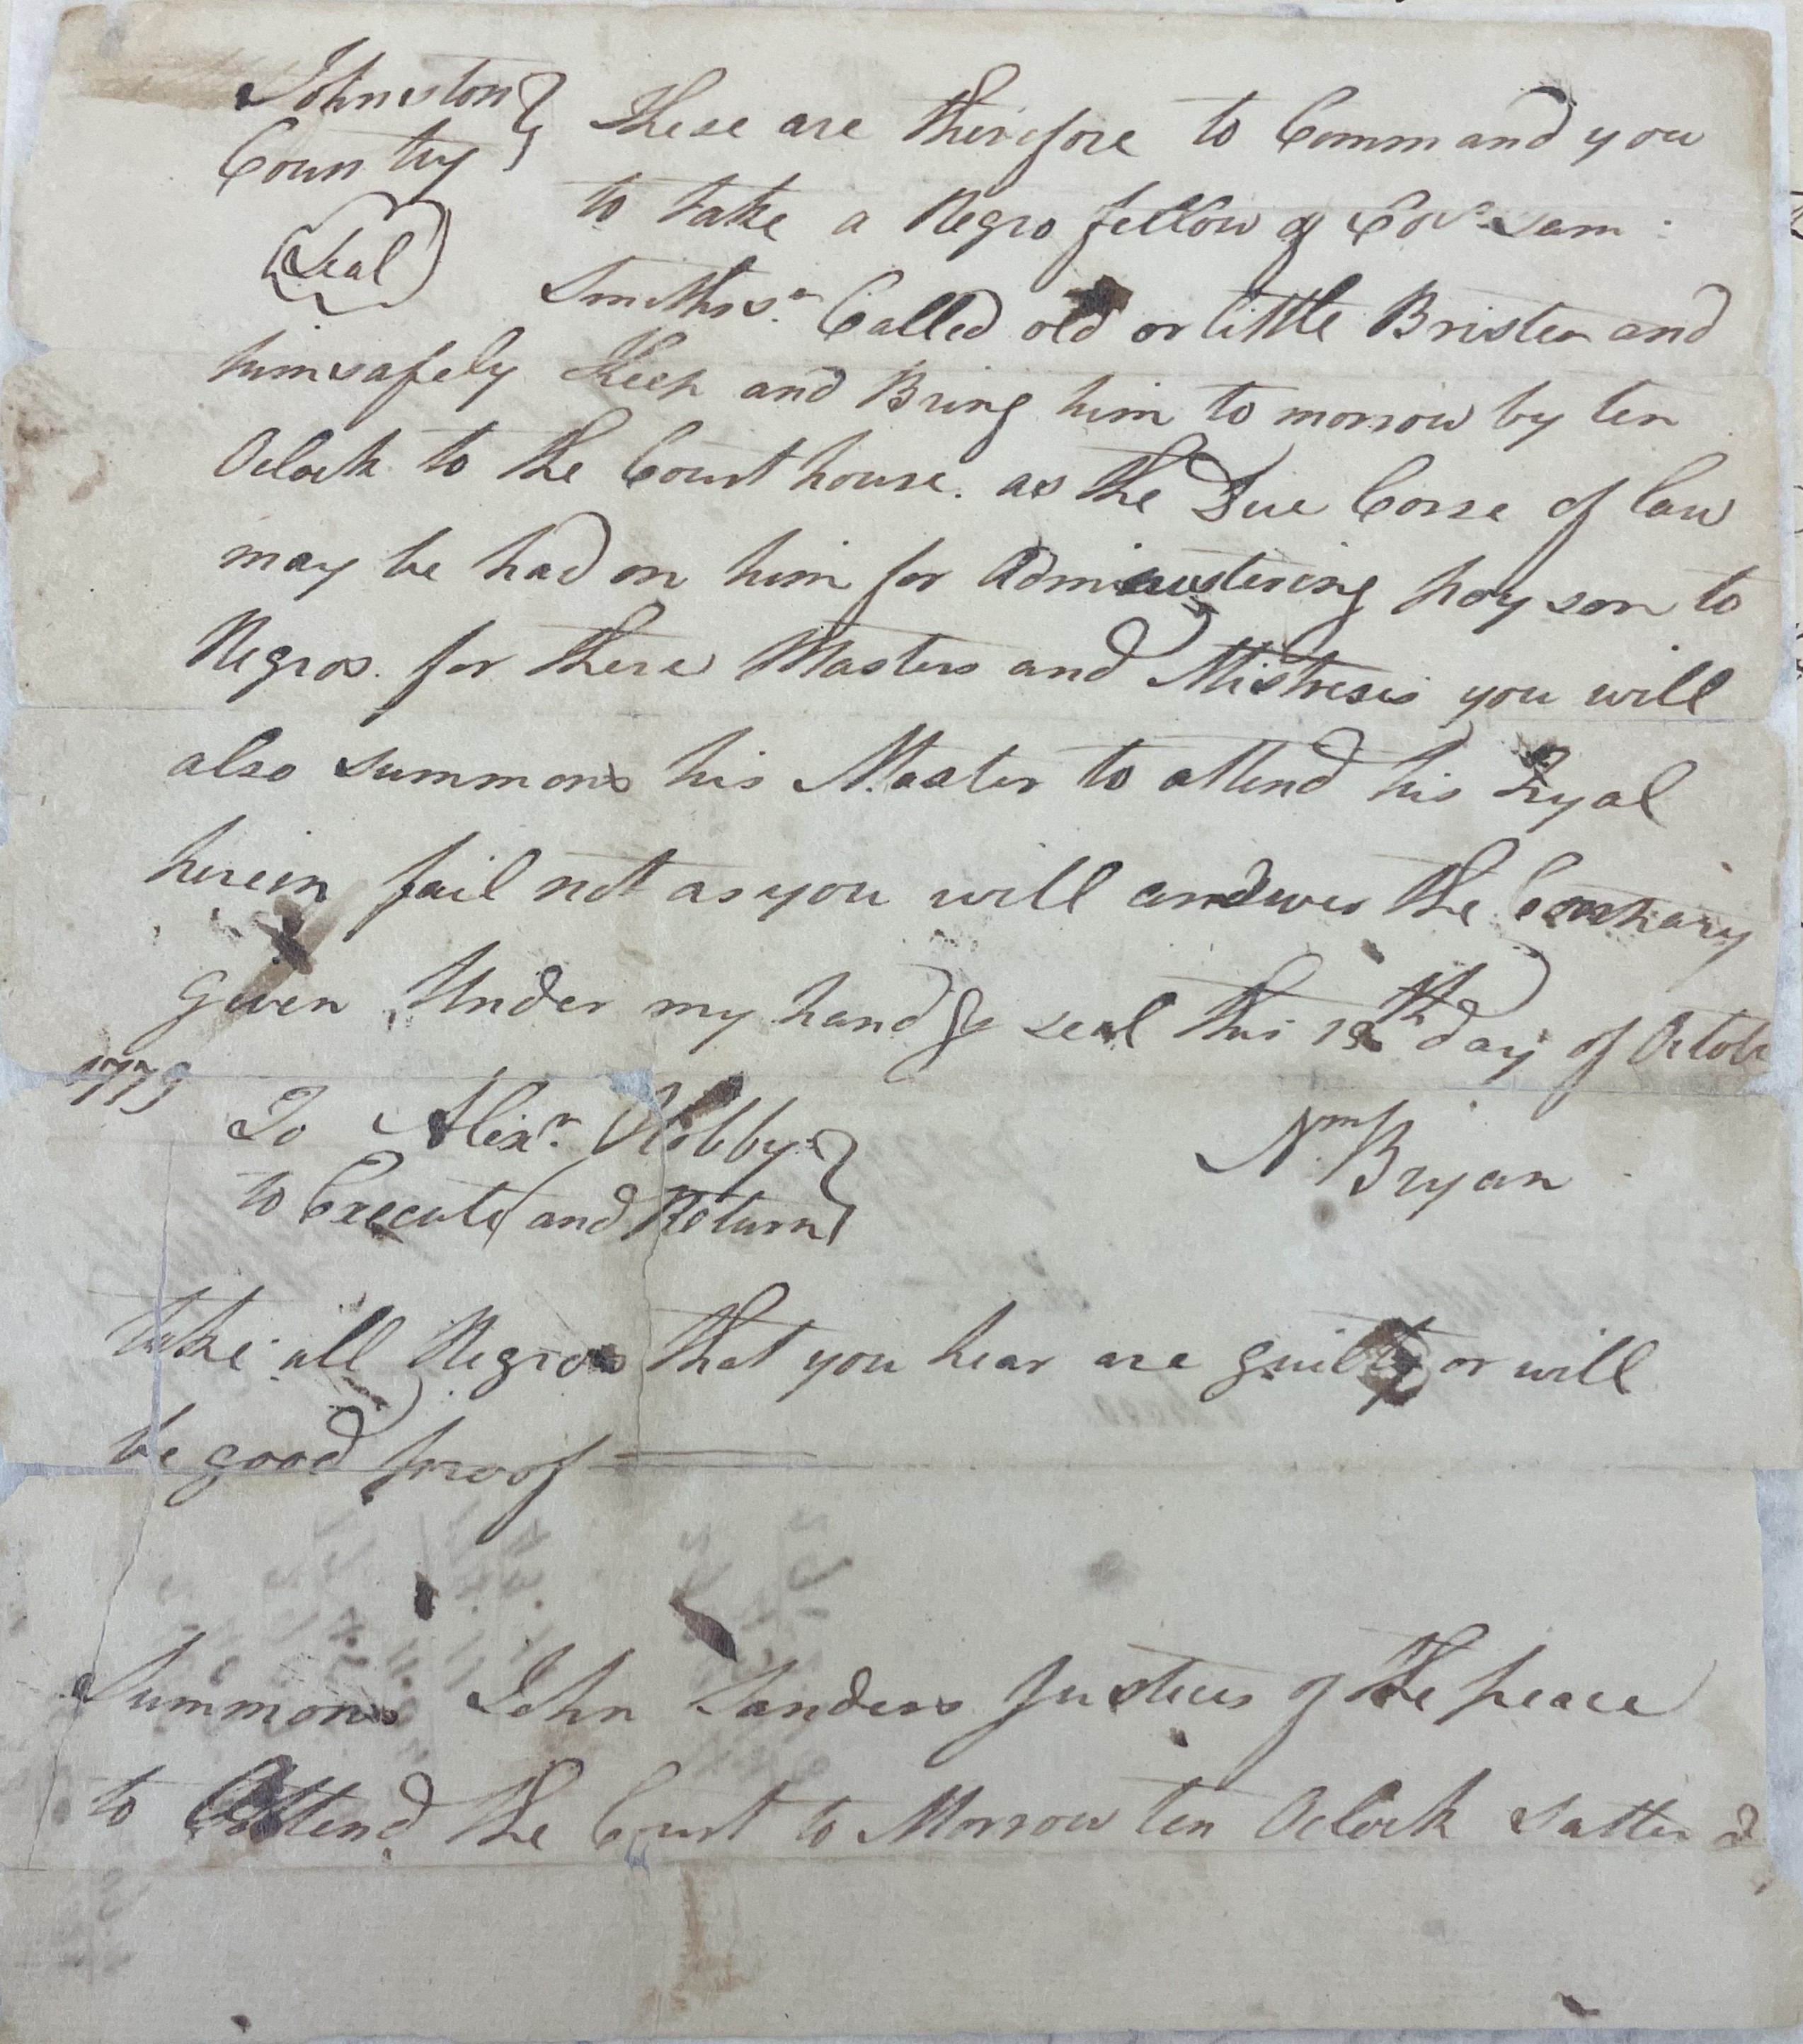 Johnston } these are therefore to Command you
County
to take a Negro fellow of Cor. Sam:
(Seal)
Smiths Sr. Called old or little Brister and
him safely Keep and Bring him to morrow by ten
Oclock to the Court house. as the Due Corse of law
may be had on him for Administering poyson to
Negros. for there Masters and Mistreses you will
also summons his Master to attend his Tryal
herein fail not as you will andwer the Contrary
given Under my hand & seal this day of Octob
1779
To Alexr. Hobby }
to Execute and Return
Nm Bryan
take all Negros that you hear are guilty or will
be good proof
Summons John Sanders Justices of the peace
to Attend the Court to Morrow ten Oclock Satter d